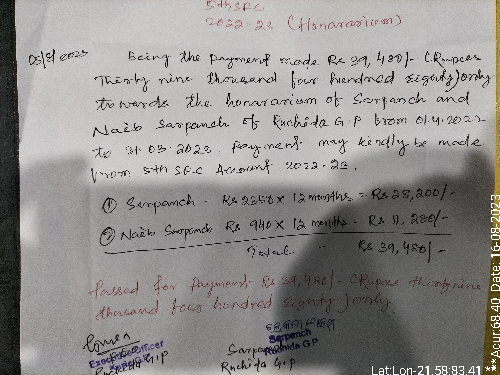 5th SFC
2022-23 (Honararium)
05/8/2023 Being the payment made Rs 39,480/- (Rupees
Thirty nine thousand four hundred eighty) only
towards the honararium of Sarpanch and
Naib Sarpanch of Ruchida G P from 01.4.2022
to 31-03-2023. Payment may kindly be made
from 5th SFC Account 2022-23.
① Sarpanch - Rs 2350 X 12 months = Rs 28,200/-
② Naib Sarpanch Rs 940 X 12 months - Rs 11,280/-
Total - Rs 39,480/-
Passed for payment Rs 39,480/- (Rupees thirty nine
thousand four hundred eighty) only.
Executive Officer
Sarpanch
Ruchida G.P
Sarpanch
Ruchida G.P
Lat Lon-21.58:83.41
***Acur:68.40 Date: 16-08-2023